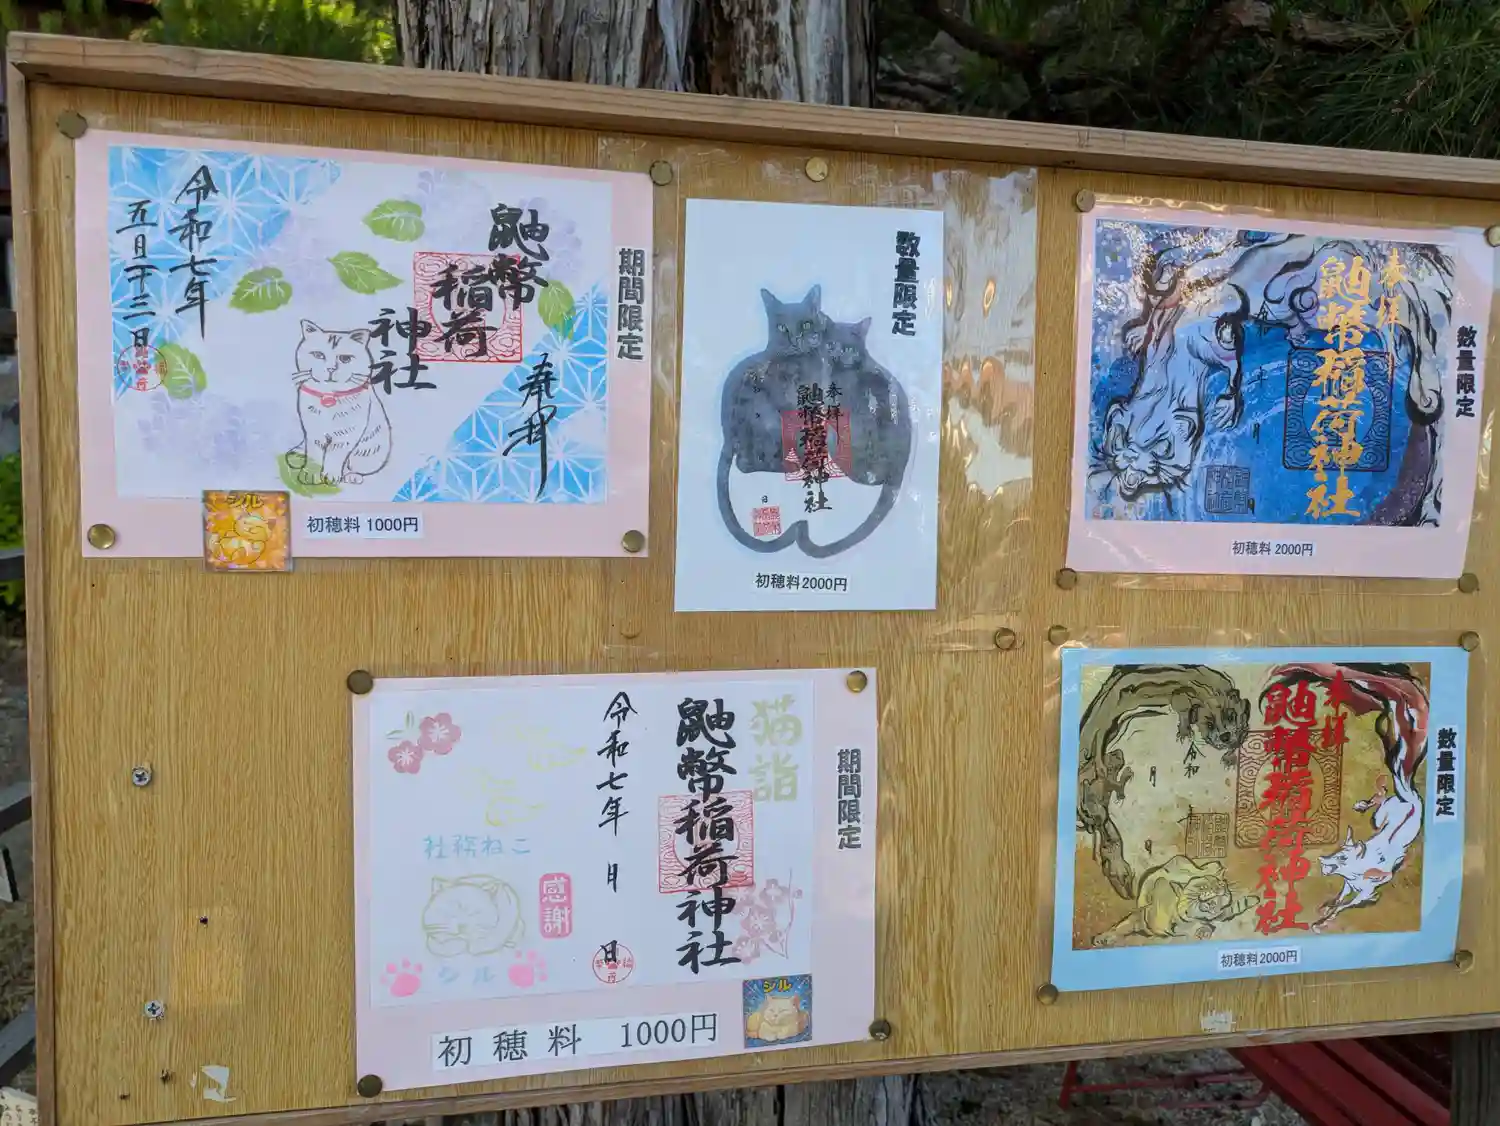 令和七年
五月二十三日
鼬幣
稲荷
神社
奉拝
期間限定
シル
初穂料 1000円
数量限定
奉拝
鼬幣稲荷神社
日
初穂料2000円
奉拝
鼬幣稲荷神社
令
月
日
数量限定
初穂料 2000円
猫詣
鼬幣稲荷神社
令和七年 月 日
社務ねこ
感謝
シル
期間限定
シル
初穂料 1000円
奉拝
鼬幣稲荷神社
令和
年
月
日
数量限定
初穂料2000円